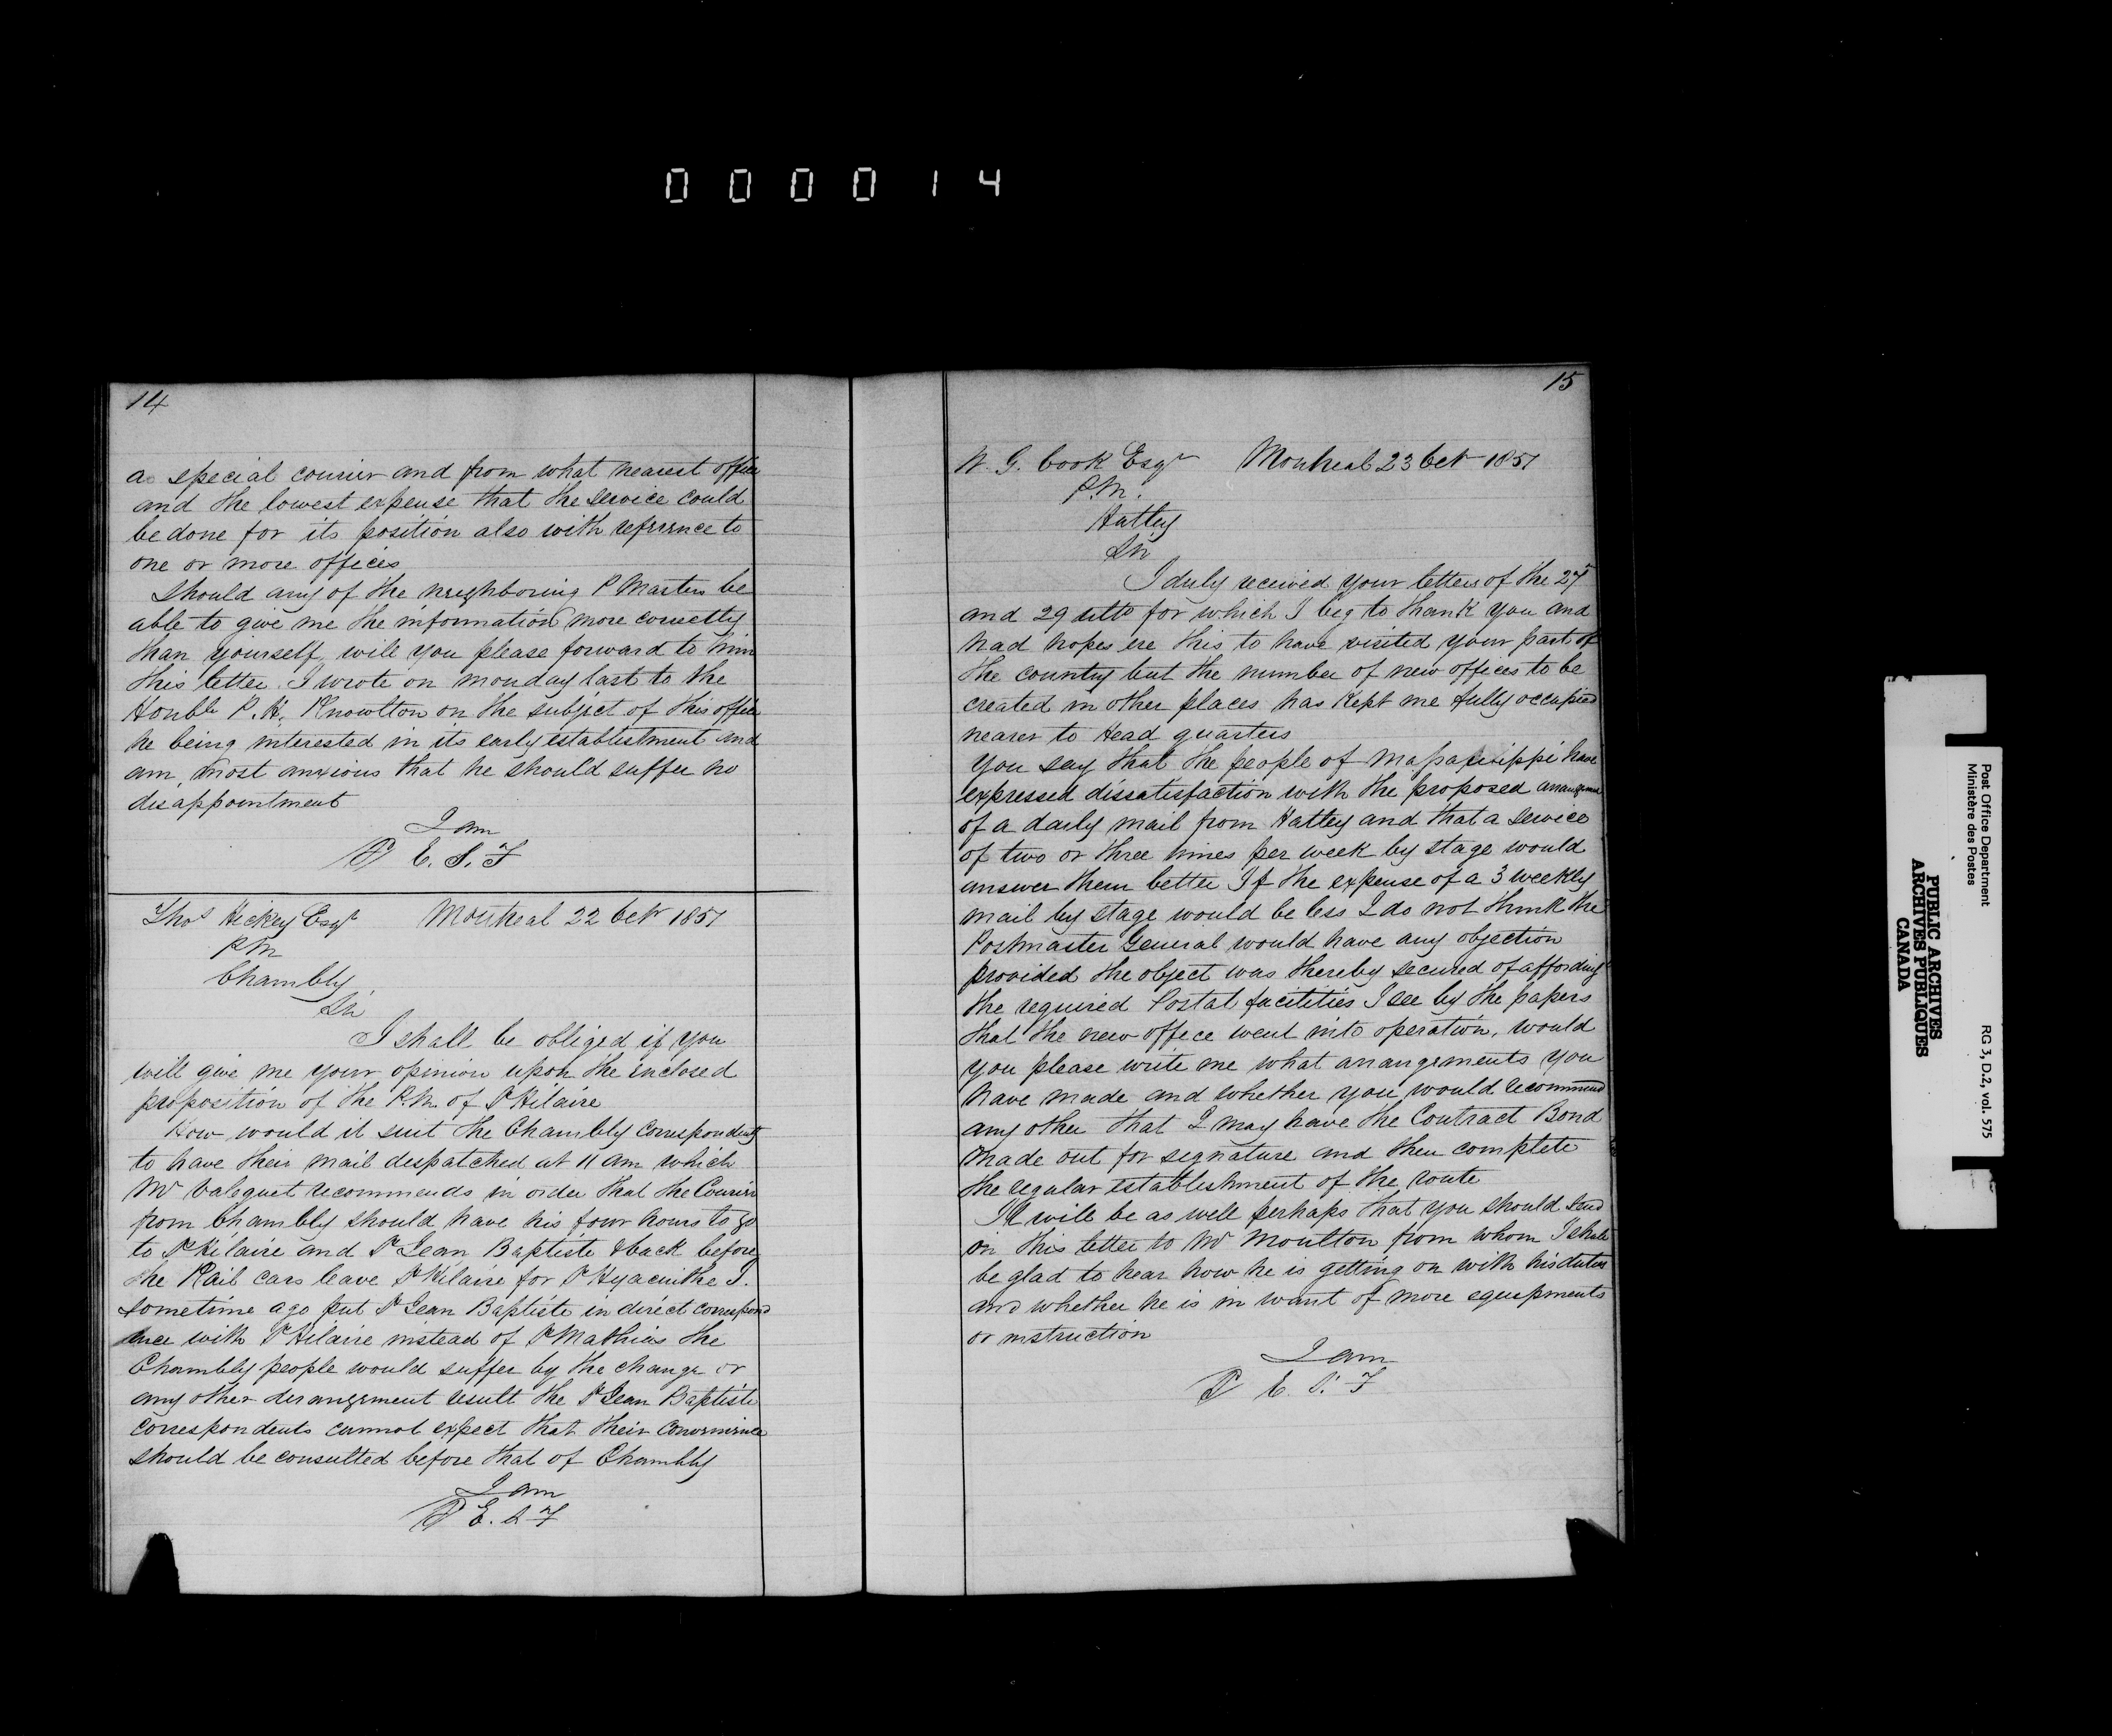 000014
14
a special courier and from what nearest office
and the lowest expense that the service could
be done for its position also with reference to
one or more offices
Should any of the neighboring P Masters be
able to give me the information more correctly
than yourself, will you please forward to him
this letter. I wrote on monday last to the
Honble P. H. Knowlton on the subject of this office
he being interested in its early establishment and
am most anxious that he should suffer no
disappointment
I am
E. S. F
Thos Hickey Esqr Montreal 22 Oct 1851
P M
Chambly
Sir
I shall be obliged if you
will give me your opinion upon the inclosed
proposition of the P.M. of St Hilaire
How would it suit the Chambly correspondents
to have their mail despatched at 11 am which
Mr Valequet recommends in order that the Courier
from Chambly should have his four hours to go
to St Hilaire and St Jean Baptiste & back before
the Rail cars leave St Hilaire for St Hyacinthe I.
sometime ago put St Jean Baptiste in direct correspond
ence with St Hilaire instead of St Mathias the
Chambly people would suffer by the change or
any other derangement result the St Jean Baptiste
correspondents cannot expect that their convenience
should be consulted before that of Chambly
I am
E. S. F
15
W. G. Cook Esqr Montreal 23 Oct 1851
P.M.
Hatley
Sir
I duly received your letters of the 27
and 29 ulto for which I beg to thank you and
had hopes ere this to have visited your part of
the country but the number of new offices to be
created in other places has kept me fully occupied
nearer to Head quarters
You say that the people of have
expressed dissatisfaction with the proposed arrangement
of a daily mail from Hatley and that a service
of two or three times per week by stage would
answer them better If the expense of a 3 weekly
mail by stage would be less I do not think the
Postmaster General would have any objection
provided the object was thereby secured of affording
the required Postal facilities I see by the papers
that the new office went into operation, would
you please write me what arrangements you
have made and whether you would recommend
any other that I may have the Contract Bond
made out for signature and then complete
the regular establishment of the route
It will be as well perhaps that you should send
on this letter to Mr Moulton from whom I shall
be glad to hear how he is getting on with his duties
and whether he is in want of more equipments
or instruction
I am
E. S. F
Post Office Department
Ministère des Postes
RG 3, D.2, vol. 575
PUBLIC ARCHIVES
ARCHIVES PUBLIQUES
CANADA